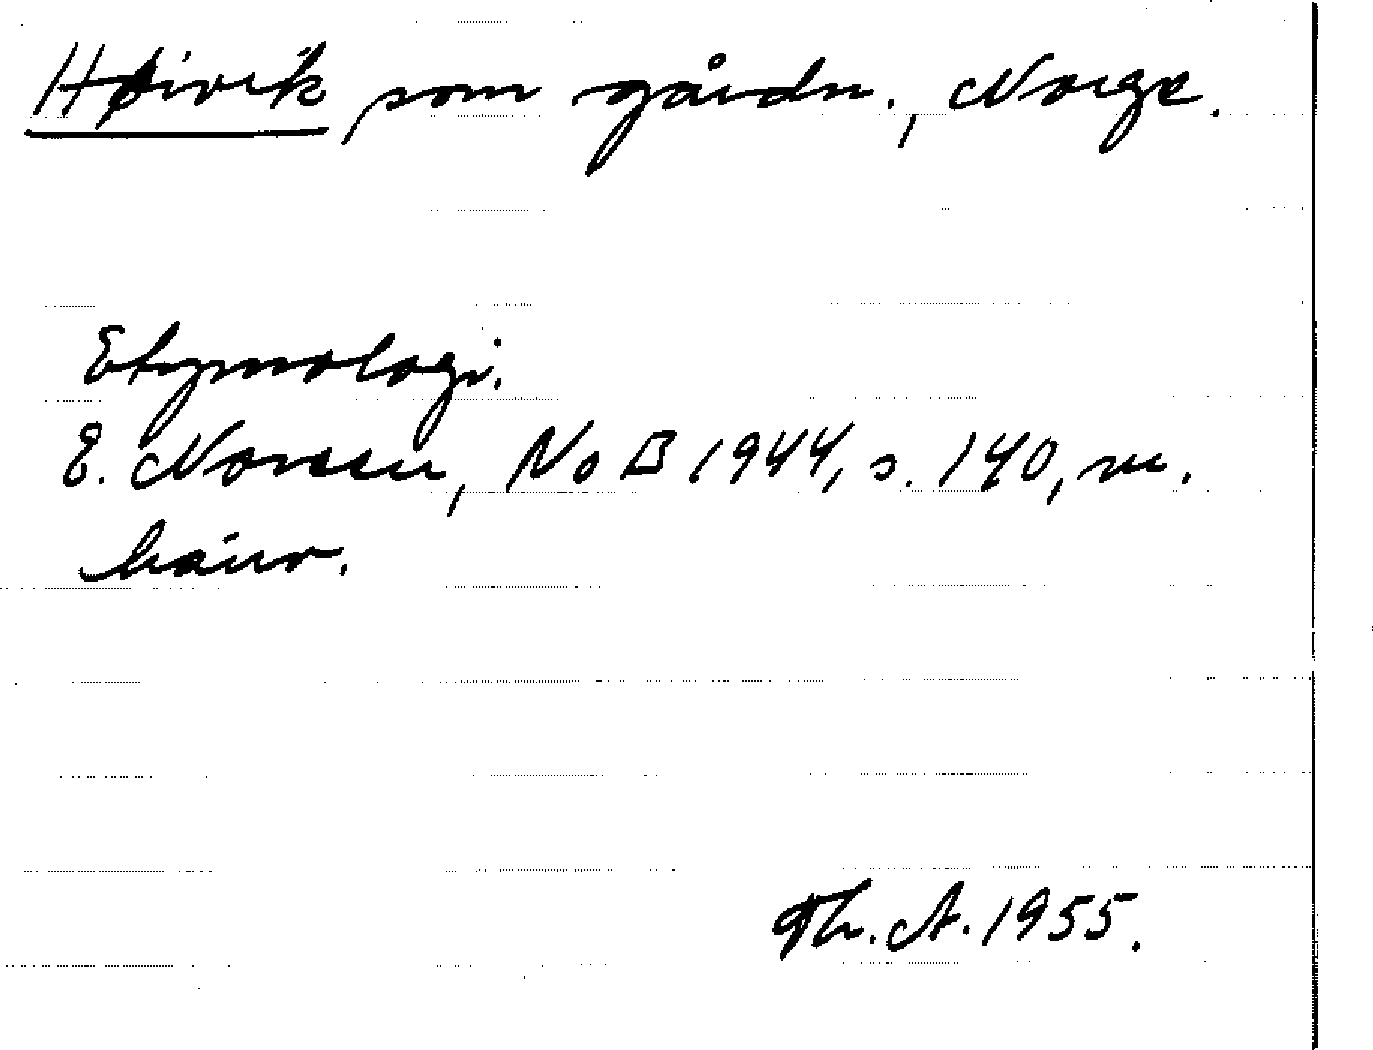 Høivik, som gårdn., Norge.
Etymologi.
E. Noreen, NoB 1944, s. 140, m.
hänv.
Th. A. 1955.